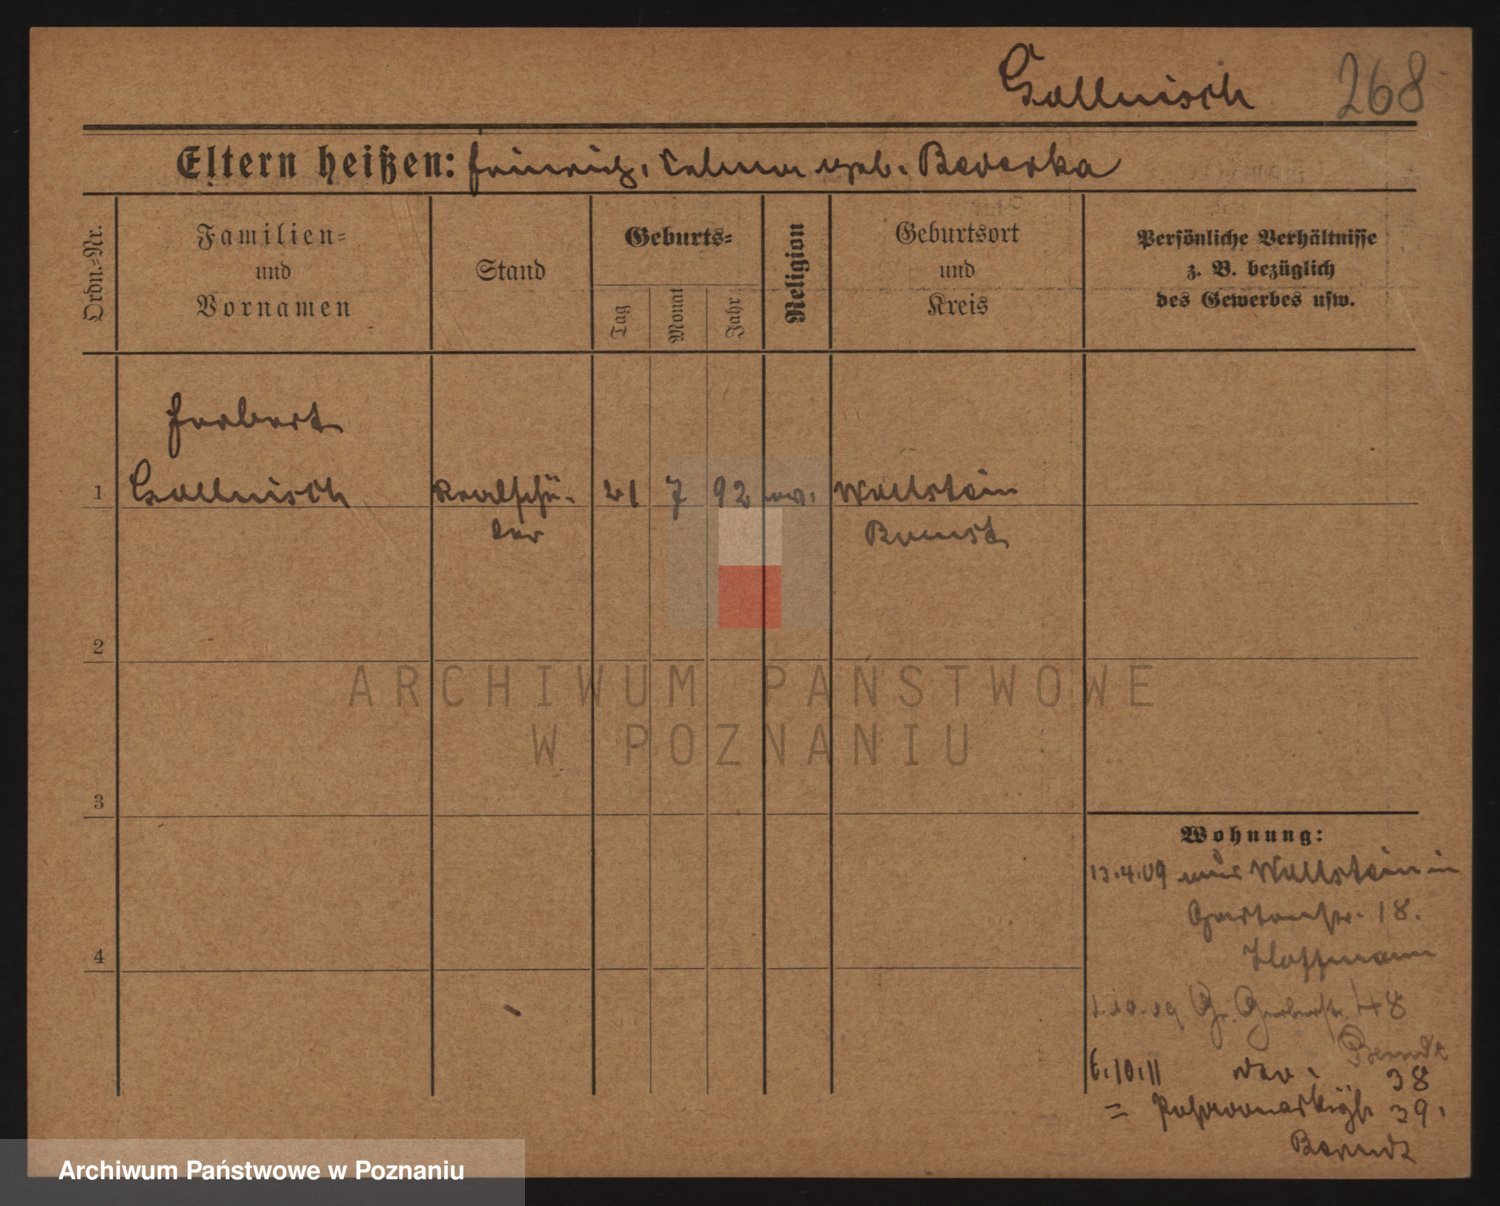 Gollnisch 268
Eltern heißen: Heinrich, Selma geb. Beverka
Ordn.-Nr.
Familien-
und
Vornamen
Stand
Geburts-
Tag
Monat
Jahr
Religion
Geburtsort
und
Kreis
Persönliche Verhältnisse
z. B. bezüglich
des Gewerbes usw.
Herbert
1 Gollnisch Realschü- 21 7 92 ev. Wollstein
ler Bomst
2
3
4
Wohnung:
13.4.09 aus Wollstein in
Gartenstr. 18.
Hoffmann
1.10.09 Gr. Gerberstr. 48
Berndt
6.10.11 38
= 39.
Berndt
ARCHIWUM PAŃSTWOWE
W POZNANIU
Archiwum Państwowe w Poznaniu